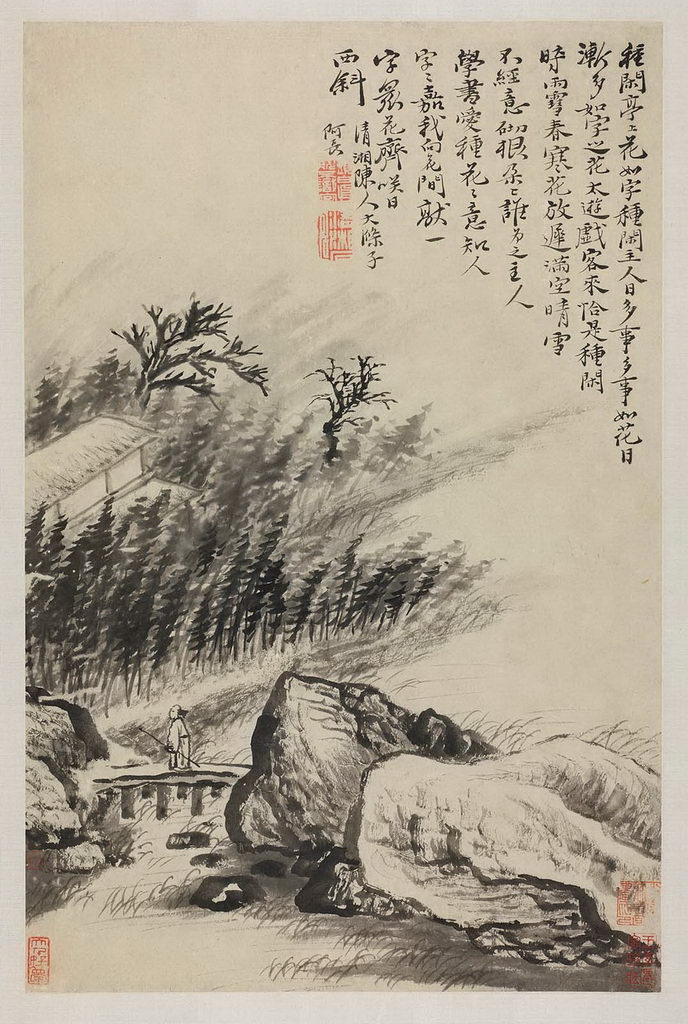 種閑亭上花如字種閑主人日多事多事如花日
漸多如字之花太遊戲客來恰是種閑
時雨雪春寒花放遲滿空晴雪
不經意砌根朵〻誰為之主人
學書愛種花〻意知人
字〻嘉我向花間獻一
字眾花齊笑日
西斜
清湘陳人大滌子
阿長